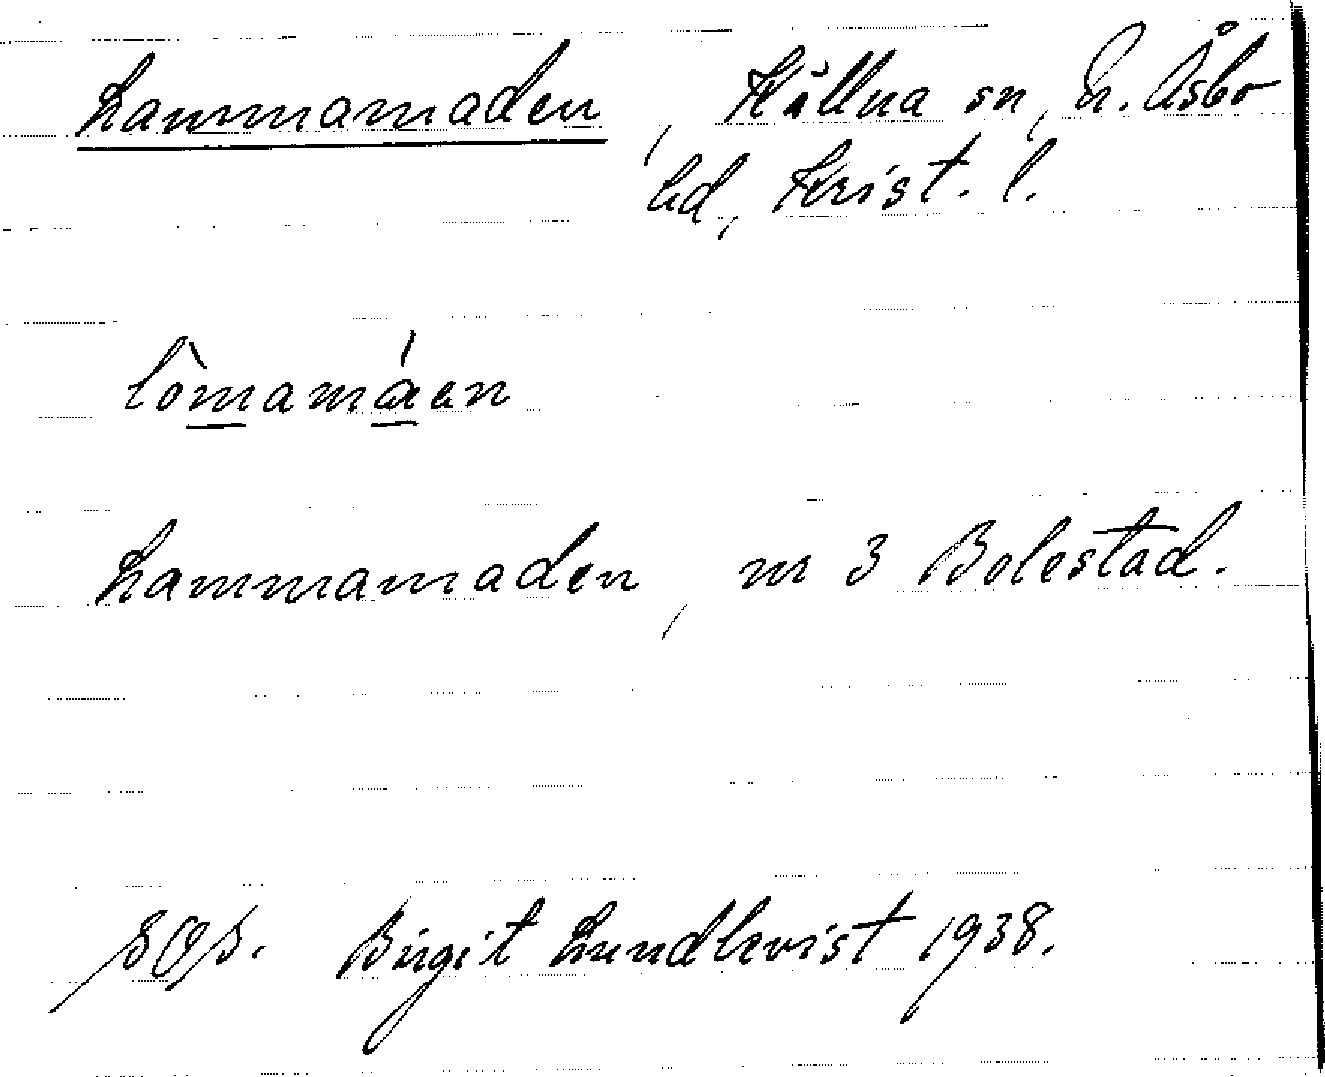 Lammamaden, Källna sn, N. Åsbo
hd, Krist. l.
lòmamáen
Lammamaden, nr 3 Bolestad.
Birgit Lundkvist 1938.